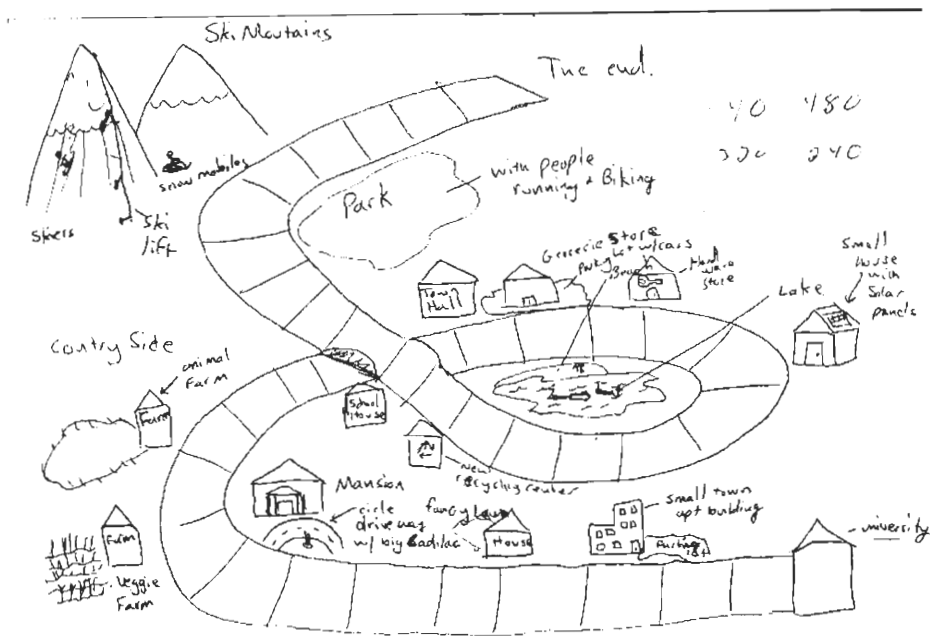 Ski Moutains
The end.
40 480
320 240
snow mobiles
Skiers
Ski
lift
Park
with people
running + Biking
Grocerie Store
w/cars
Beach
Hardware
Store
Town
Hall
Lake
Small
House
with
Solar
panels
Contry Side
animal
Farm
Farm
School
House
New
recycling center
Mansion
circle
driveway
w/ big Cadilac
fancy lawn
House
small town
apt building
university
Farm
Veggie
Farm